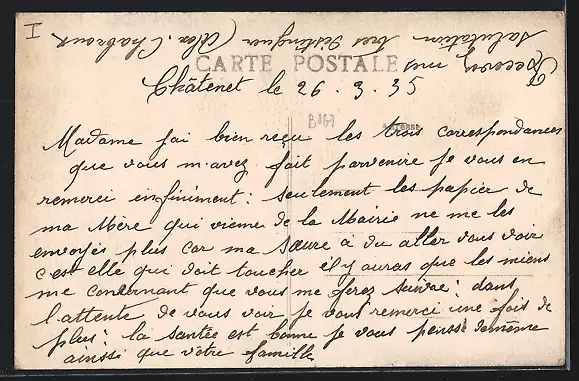 I
CARTE POSTALE
Châtenet le 26.3.35
B167
ADRESSE
Madame jai bien reçu les trois correspondances
que vous m'avez fait parvenire je vous en
remerci infiniment: seulement les papier de
ma Mère qui vienne de la Mairie ne me les
envoyés plus car ma sœure à du aller vous voir
c'est elle qui doit toucher il y auras que les miens
me concernant que vous me ferez suivre: dans
l'attente de vous voir je vous remerci une fois de
plus: la santée est bonne je vous pensse demême
ainssi que vôtre famille
Recevez mes
salutation tres distinguer